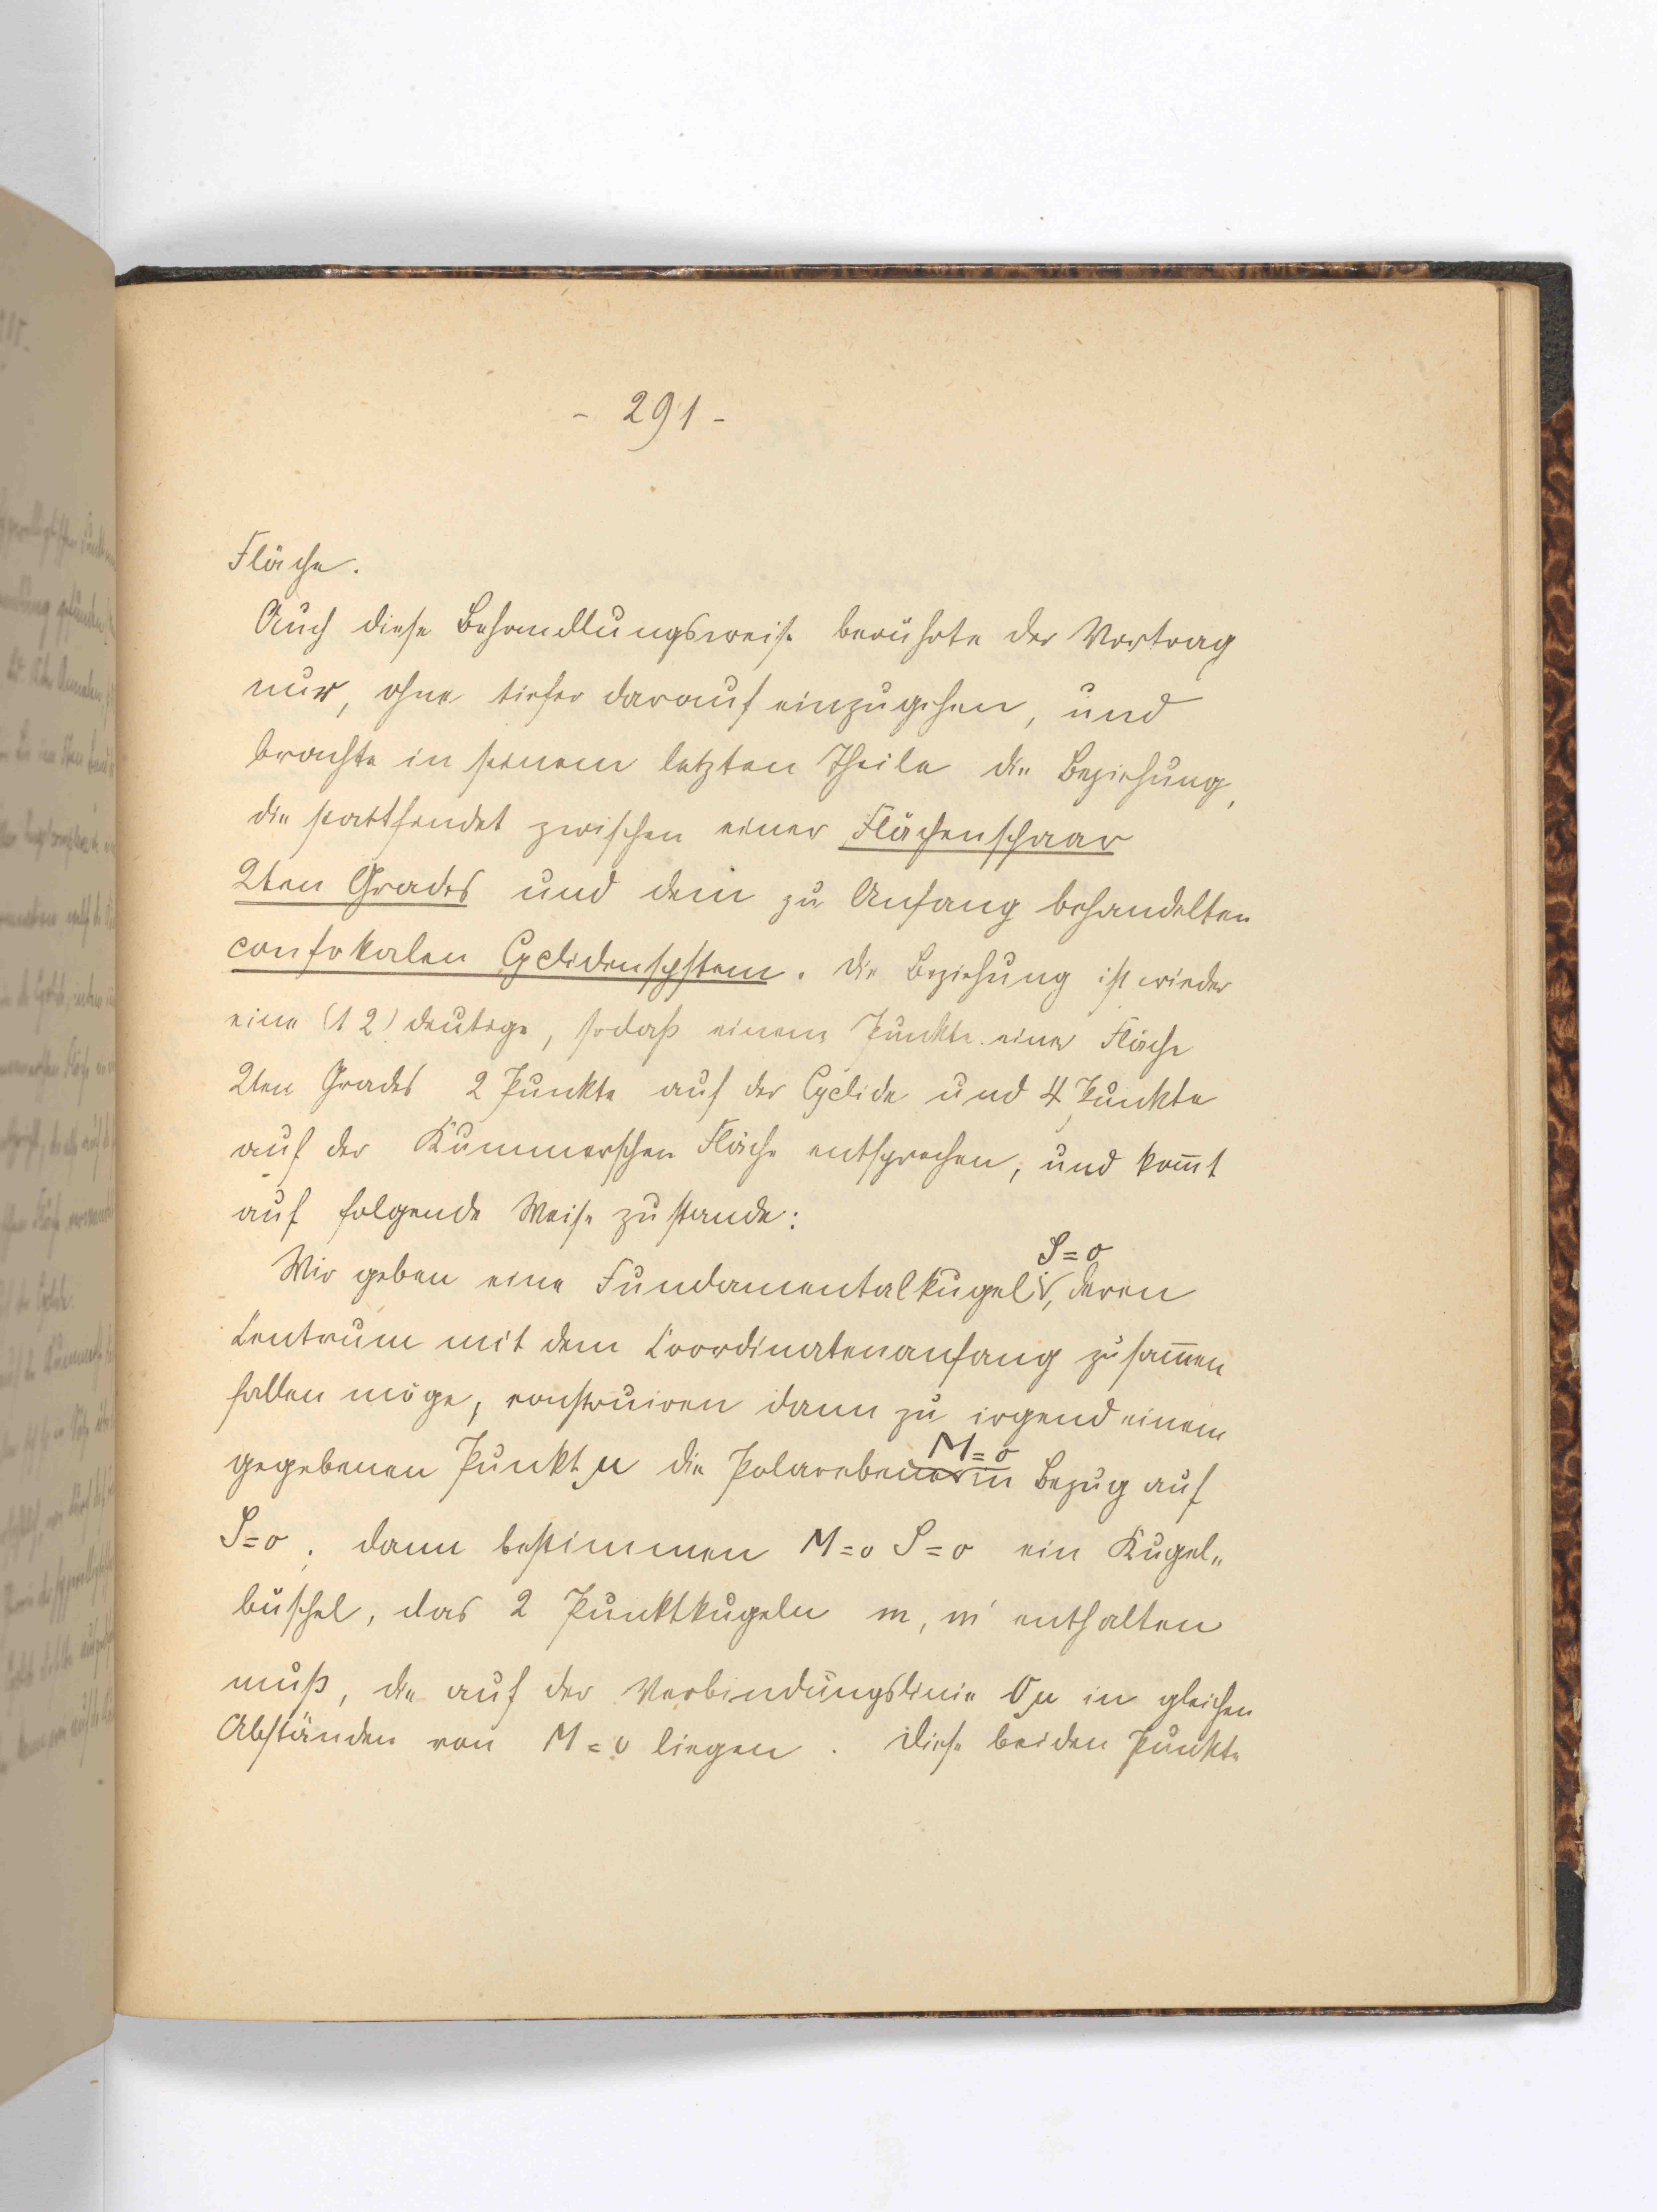 - 291 -
Fläche.
Auch diese Behandlungsweise berührte der Vortrag
nur, ohne tiefer darauf einzugehen, und
brachte in seinem letzten Theile die Beziehung,
die stattfindet zwischen einer Flächenschaar
2ten Grades und dem zu Anfang behandelten
confokalen Cyclidensystem. Die Beziehung ist wieder
eine (1 2) deutige, sodaß einem Punkte einer Fläche
2ten Grades 2 Punkte auf der Cyclide und 4 Punkte
auf der Kummerschen Fläche entsprechen, und kom̄t
auf folgende Weise zustande:
S=0
Wir geben eine Fundamentalkugel, deren
Centrum mit dem Coordinatenanfang zusam̄en
fallen möge, construiren dann zu irgend einem
M=0
gegebenen Punkt μ die Polarebene in Bezug auf
S=0; dann bestimmen M=0 S=0 ein Kugel„
büschel, das 2 Punktkugeln m, m' enthalten
muß, die auf der Verbindungslinie Oμ in gleichen
Abständen von M=0 liegen. Diese beiden Punkte